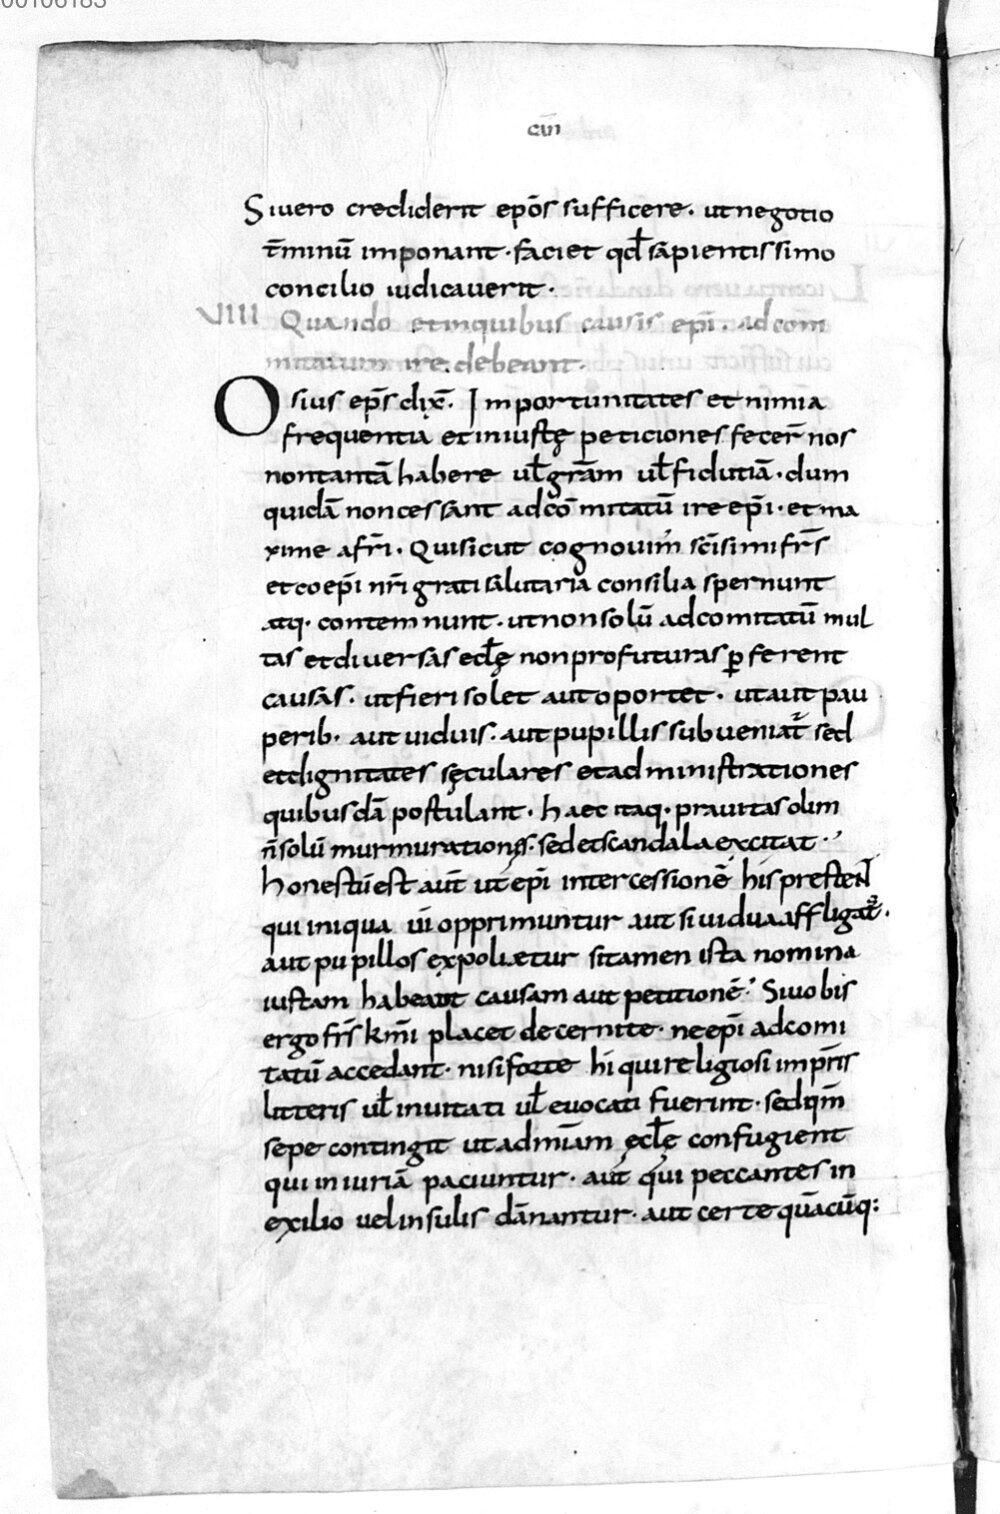 00106183
ciīn
Si uero crediderit ep̄os sufficere. ut negotio
t̄minū imponant. faciet qđ sapientissimo
concilio iudicauerit.
VIIII Quando et inquibus causis ep̄i. ad com
mitatum ire. debeant.
Osius ep̄s dix̄. Importunitates et nimia
frequentia et iniustę peticiones fecer̄ nos
non tantā habere uł gr̄am uł fidutiā. dum
quidā non cessant ad cōmitatū ire ep̄i. et ma
xime afr̄i. Qui sicut cognouim̄ sc̄isimi fr̄s
et coep̄i nr̄i grati salutaria consilia spernunt
atq. contemnunt. ut non solū ad comitatū mul
tas et diuersas eclę non profuturas ꝑferent
causas. ut fieri solet aut oportet. ut aut pau
perib. aut uiduis. aut pupillis subueniat̄ sed
et dignitates sęculares et administrationes
quibusdā postulant. haec itaq. prauitas olim
n̄ solū murmurationes. sed et scandala excitat.
Honestū est aut̄ ut ep̄i intercessionē his prestent
qui iniqua ui opprimuntur aut si uidua affligat̄.
aut pupillos expolietur si tamen ista nomina
iustam habeant causam aut petitionē. Si uobis
ergo fr̄s km̄i placet decernite. ne ep̄i ad comi
tatū accedant. nisi forte hi qui religiosi impr̄is
litteris uł inuitati uł euocati fuerint. sed qm̄
sepe contingit ut ad mīam ęclę confugient
qui iniuriā paciuntur. aut qui peccantes in
exilio uel insulis dānantur. aut certe quācūq: